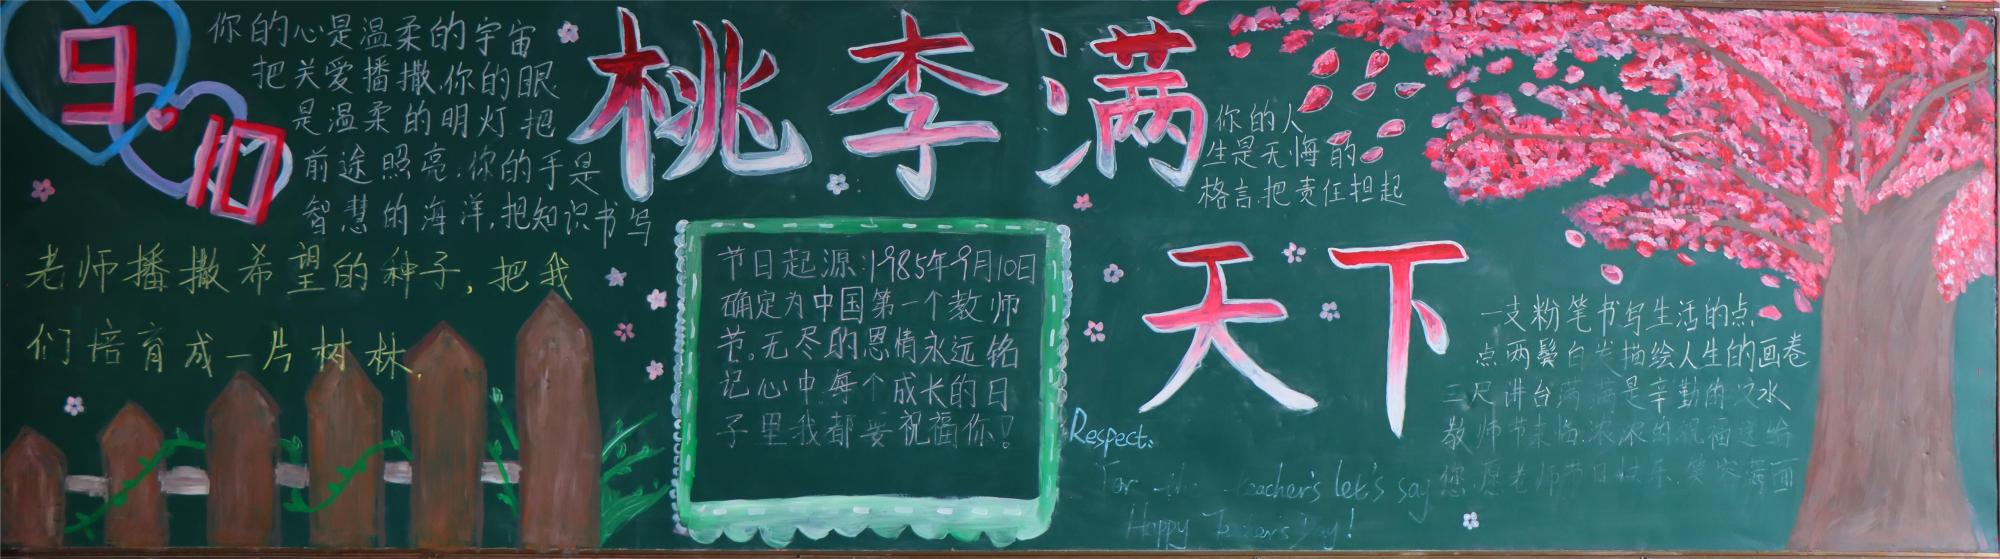 9.10
你的心是温柔的宇宙
把关爱播撒,你的眼
是温柔的明灯把
前途照亮,你的手是
智慧的海洋,把知识书写
老师播撒希望的种子,把我
们培育成一片树林.
桃李满
天下
节日起源:1985年9月10日
确定为中国第一个教师
节。无尽的恩情永远铭
记心中每个成长的日
子里我都要祝福你!
你的人
生是无悔的
格言,把责任担起
一支粉笔书写生活的点
点两鬓白发描绘人生的画卷
三尺讲台满满是辛勤的汶水
教师节来临,浓浓的祝福送给
您,愿老师节日快乐,笑容满面
Respect:
For the teacher's let's say
Happy Teacher's Day!